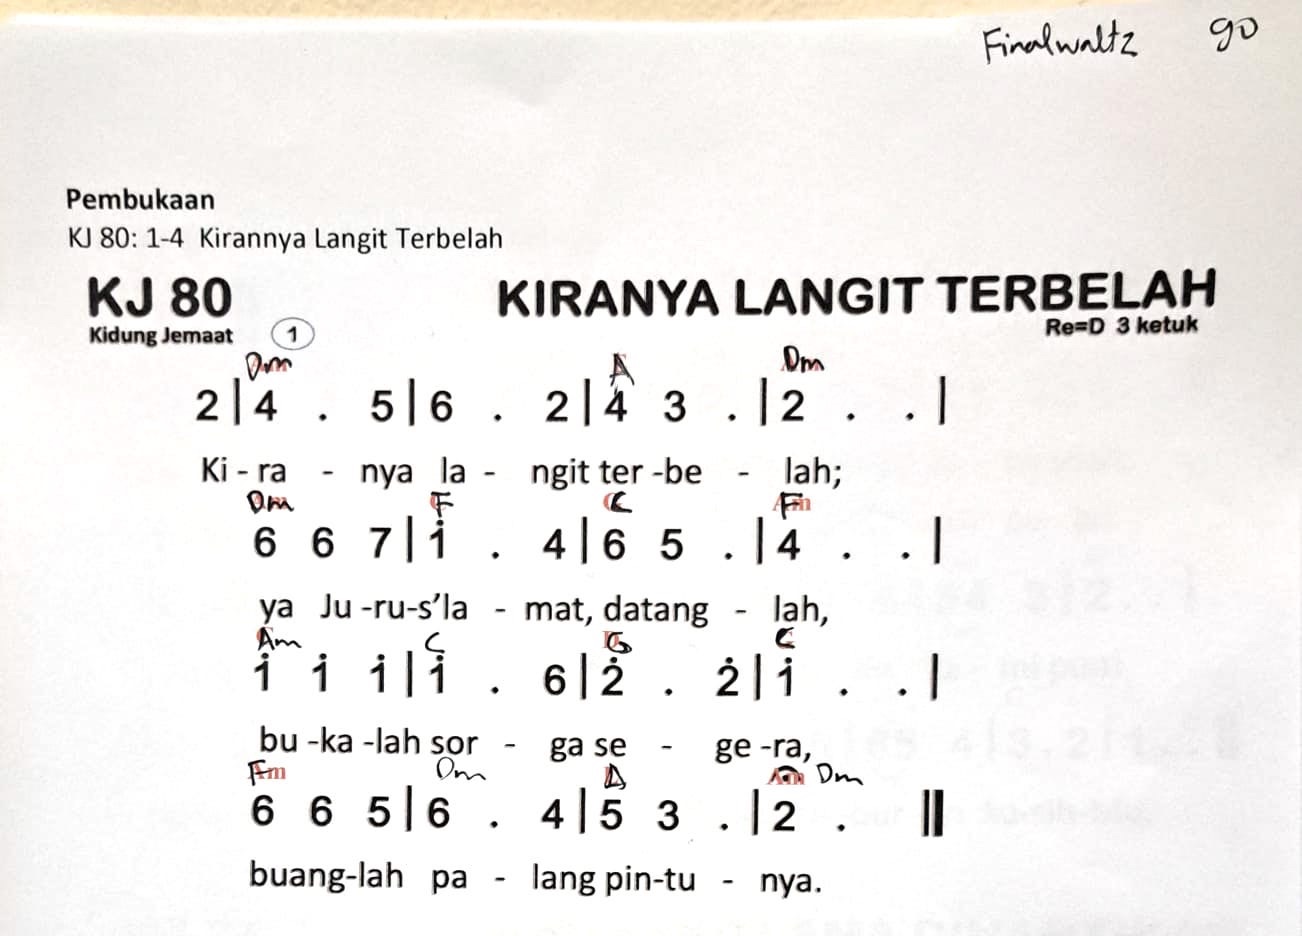 Finalwaltz 90
Pembukaan
KJ 80: 1-4 Kirannya Langit Terbelah
KJ 80 KIRANYA LANGIT TERBELAH
Kidung Jemaat 1 Re=D 3 ketuk
Dm A Dm
2 | 4 . 5 | 6 . 2 | 4 3 . | 2 . . |
Ki - ra - nya la - ngit ter -be - lah;
Dm F C F
6 6 7 | i . 4 | 6 5 . | 4 . . |
ya Ju -ru-s’la - mat, datang - lah,
Am C G C
i i i | i . 6 | 2̇ . 2̇ | i . . |
bu -ka -lah sor - ga se - ge -ra,
F Dm A Dm
6 6 5 | 6 . 4 | 5 3 . | 2 . ||
buang-lah pa - lang pin-tu - nya.